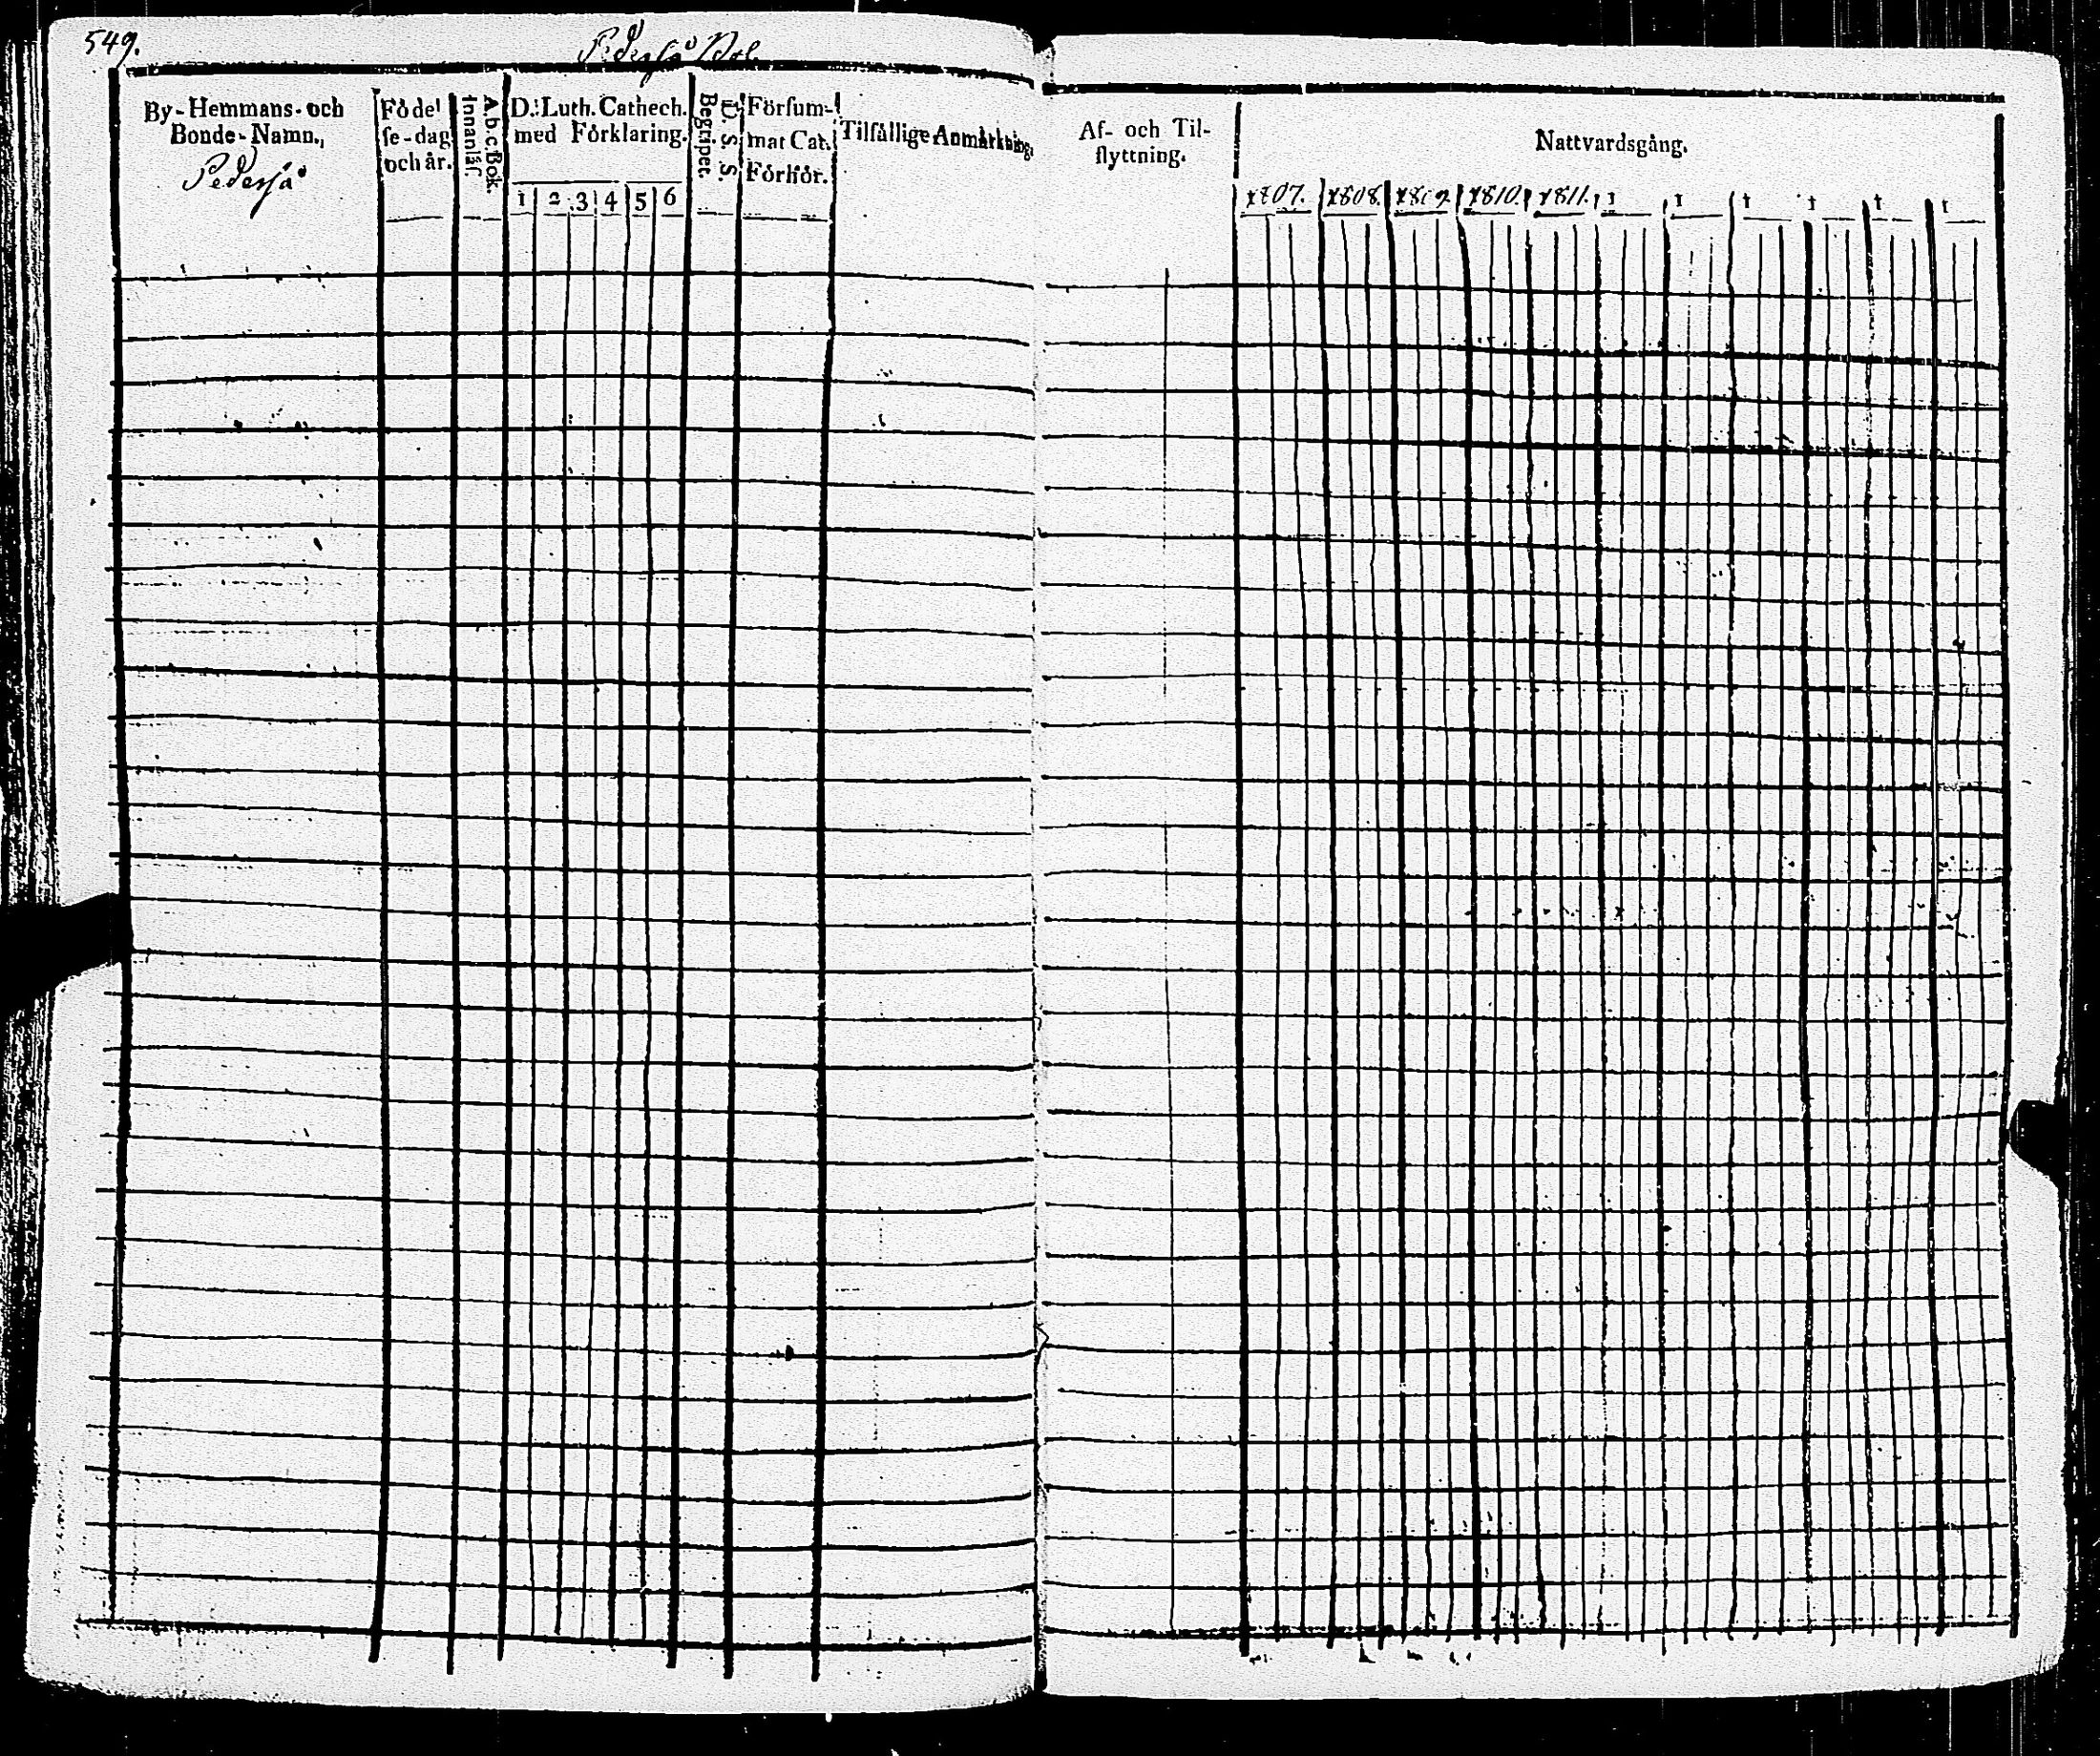 549.
Pedersö Bol.
By-Hemmans-och
Bonde-Namn.
Pedersö
Födel
se-dag
och år.
A.b.c.Bok.
Innanläs.
D: Luth. Cathech.
med Förklaring.
1 2 3 4 5 6
D. S. S.
Begriper.
Försum-
mat Cat.
Förhör.
Tilfällige Anmärkning.
Af- och Til-
flyttning.
Nattvardsgång.
1807. 1808. 1809. 1810. 1811. 1 1 1 1 1 1